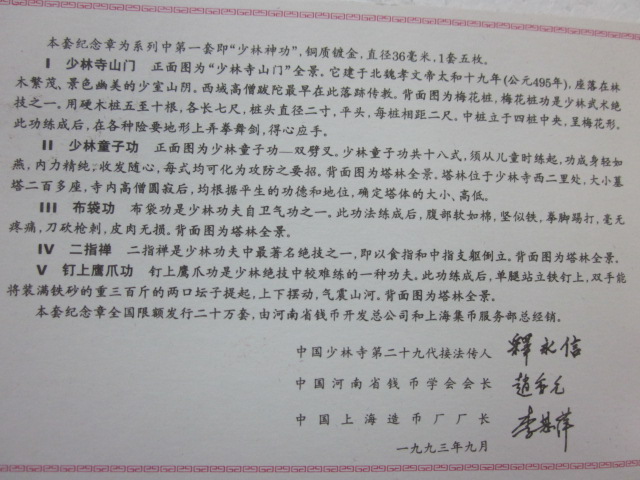 本套纪念章为系列中第一套即“少林神功”,铜质镀金,直径36毫米,1套五枚。
I 少林寺山门 正面图为“少林寺山门”全景。它建于北魏孝文帝太和十九年(公元495年),座落在林
木繁茂、景色幽美的少室山阴。西域高僧跋陀最早在此落迹传教。背面图为梅花桩,梅花桩功是少林武术绝
技之一。用硬木桩五至十根,各长七尺,桩头直径二寸,平头,每桩相距二尺。中桩立于四桩中央,呈梅花形。
此功练成后,在各种险要地形上弄拳舞剑,得心应手。
II 少林童子功 正面图为少林童子功—双劈叉。少林童子功共十八式,须从儿童时练起,功成身轻如
燕,内力精纯,收发随心,每式均可化为攻防之要招。背面图为塔林全景。塔林位于少林寺西二里处,大小墓
塔二百多座,寺内高僧圆寂后,均根据平生的功德和地位,确定塔体的大小、高低。
III 布袋功 布袋功是少林功夫自卫气功之一。此功法练成后,腹部软如棉,坚似铁,拳脚踢打,毫无
疼痛,刀砍枪刺,皮肉无损。背面图为塔林全景。
IV 二指禅 二指禅是少林功夫中最著名绝技之一,即以食指和中指支躯倒立。背面图为塔林全景。
V 钉上鹰爪功 钉上鹰爪功是少林绝技中较难练的一种功夫。此功练成后,单腿站立铁钉上,双手能
将装满铁砂的重三百斤的两口坛子提起,上下摆动,气震山河。背面图为塔林全景。
本套纪念章全国限额发行二十万套,由河南省钱币开发总公司和上海集币服务部总经销。
中国少林寺第二十九代接法传人 释永信
中国河南省钱币学会会长
中国上海造币厂厂长
一九九三年九月